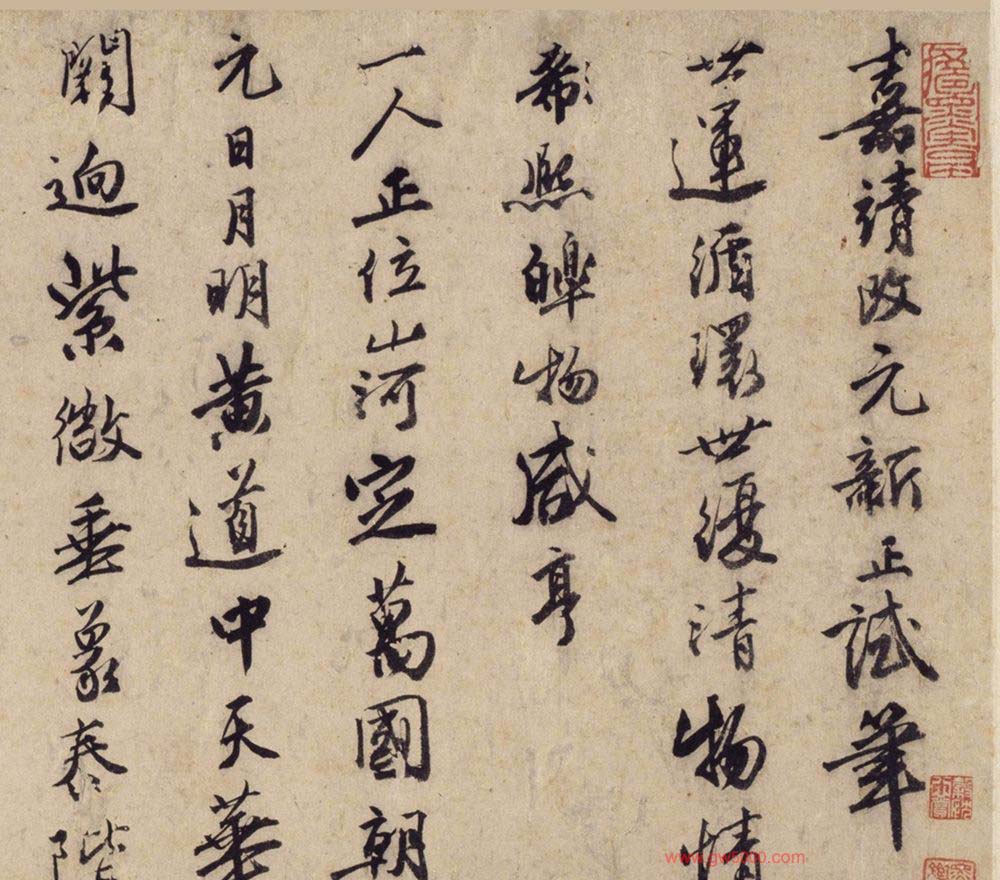 嘉靖改元新正試筆
世運循環世復清物情
熙皞物咸亨
一人正位山河定萬國朝
元日月明黃道中天華
闕迥紫微垂象泰階
www.gw8000.com